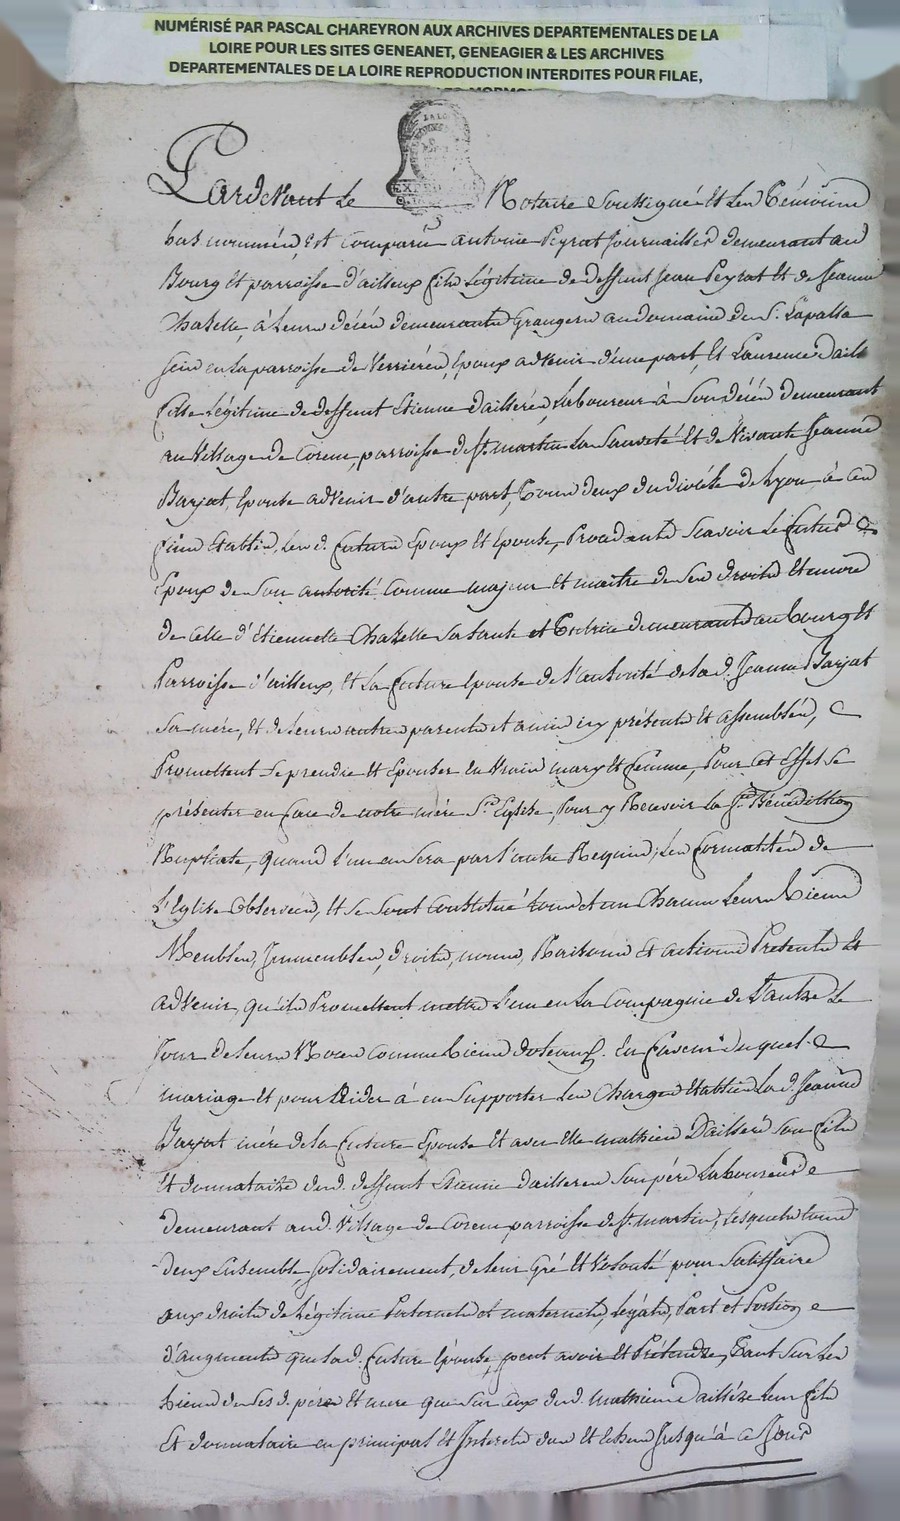 NUMÉRISÉ PAR PASCAL CHAREYRON AUX ARCHIVES DEPARTEMENTALES DE LA
LOIRE POUR LES SITES GENEANET, GENEAGIER & LES ARCHIVES
DEPARTEMENTALES DE LA LOIRE REPRODUCTION INTERDITES POUR FILAE,
Pardevant Le Notaire Soussigné et Les Témoins
bas nommés, Est Comparu antoine Peyrat Journaillier demeurant au
Bourg et parroisse d'ailleux fils Légitime de deffunt Jean Peyrat Et de Jeanne
Chazelle, à Leurs décés demeurants Grangers au domaine de
en La parroisse de Verrières, Epoux advenir d'une part, Et Laurence
fille Légitime de deffunt Etienne daillere, Laboureur à Son décés demeurant
au Village de Corem, parroisse de St. martin La Sauveté Et de Vivante Jeanne
Barjat, Epouse advenir d'autre part, Tous deux du diocése de Lyon, à ces
fins Etablis, Les d. futurs Epoux Et Epouse, Procedants Scavoir Le futur
Epoux de Son autorité Comme majeur Et maitre de Ses droits Et encore
de Celle d'Etiennette Chazelle Sa tante demeurant au bourg Et
Parroisse d'ailleux, Et La future Epouse de L'autorité de La d. Jeanne Barjat
Sa mère, Et de Leurs autres parents et amis icy présents Et assemblés,
Promettent Se prendre Et Epouser En Vrais mary Et femme, Pour Cet Effet Se
présenter en face de notre mère Ste. Eglise, Pour y Recevoir La Ste. Bénédiction
Nuptiale, quand L'un en Sera par L'autre Requis; Les formalités de
L'Eglise Observées, Et Se Sont Constitué tous et un Chacun Leurs Biens
Meubles, Immeubles, droits, noms, Raisons Et actions Présents Et
advenir, qu'ils Promettent mettre L'un en La Compagnie de L'autre Le
Jour de Leurs Noces Comme biens dotaux. En faveur duquel
mariage Et pour Aider à en Supporter Les Charges Etablie La d. Jeanne
Barjat mère de La future Epouse Et avec Elle mathieu Dailleré Son fils
Et donnataire dud. deffunt Etienne dailleres Son père Laboureur
demeurant aud. Village de Corem parroisse de St. martin, Lesquels tous
deux Ensemble, Solidairement, de Leur Gré Et Volonté pour Satisffaire
aux droits de Légitime Paternels et maternels, Légats, Part et Portion
d'augments que Lad. future Epouse peut avoir Et Prétendre, Tant Sur Les
biens de Ses d. père Et mere que Sur Ceux dud. mathieu daillere Leur fils
Et donnataire en principal Et Interets dus Et Echus Jusqu'à Ce Jour